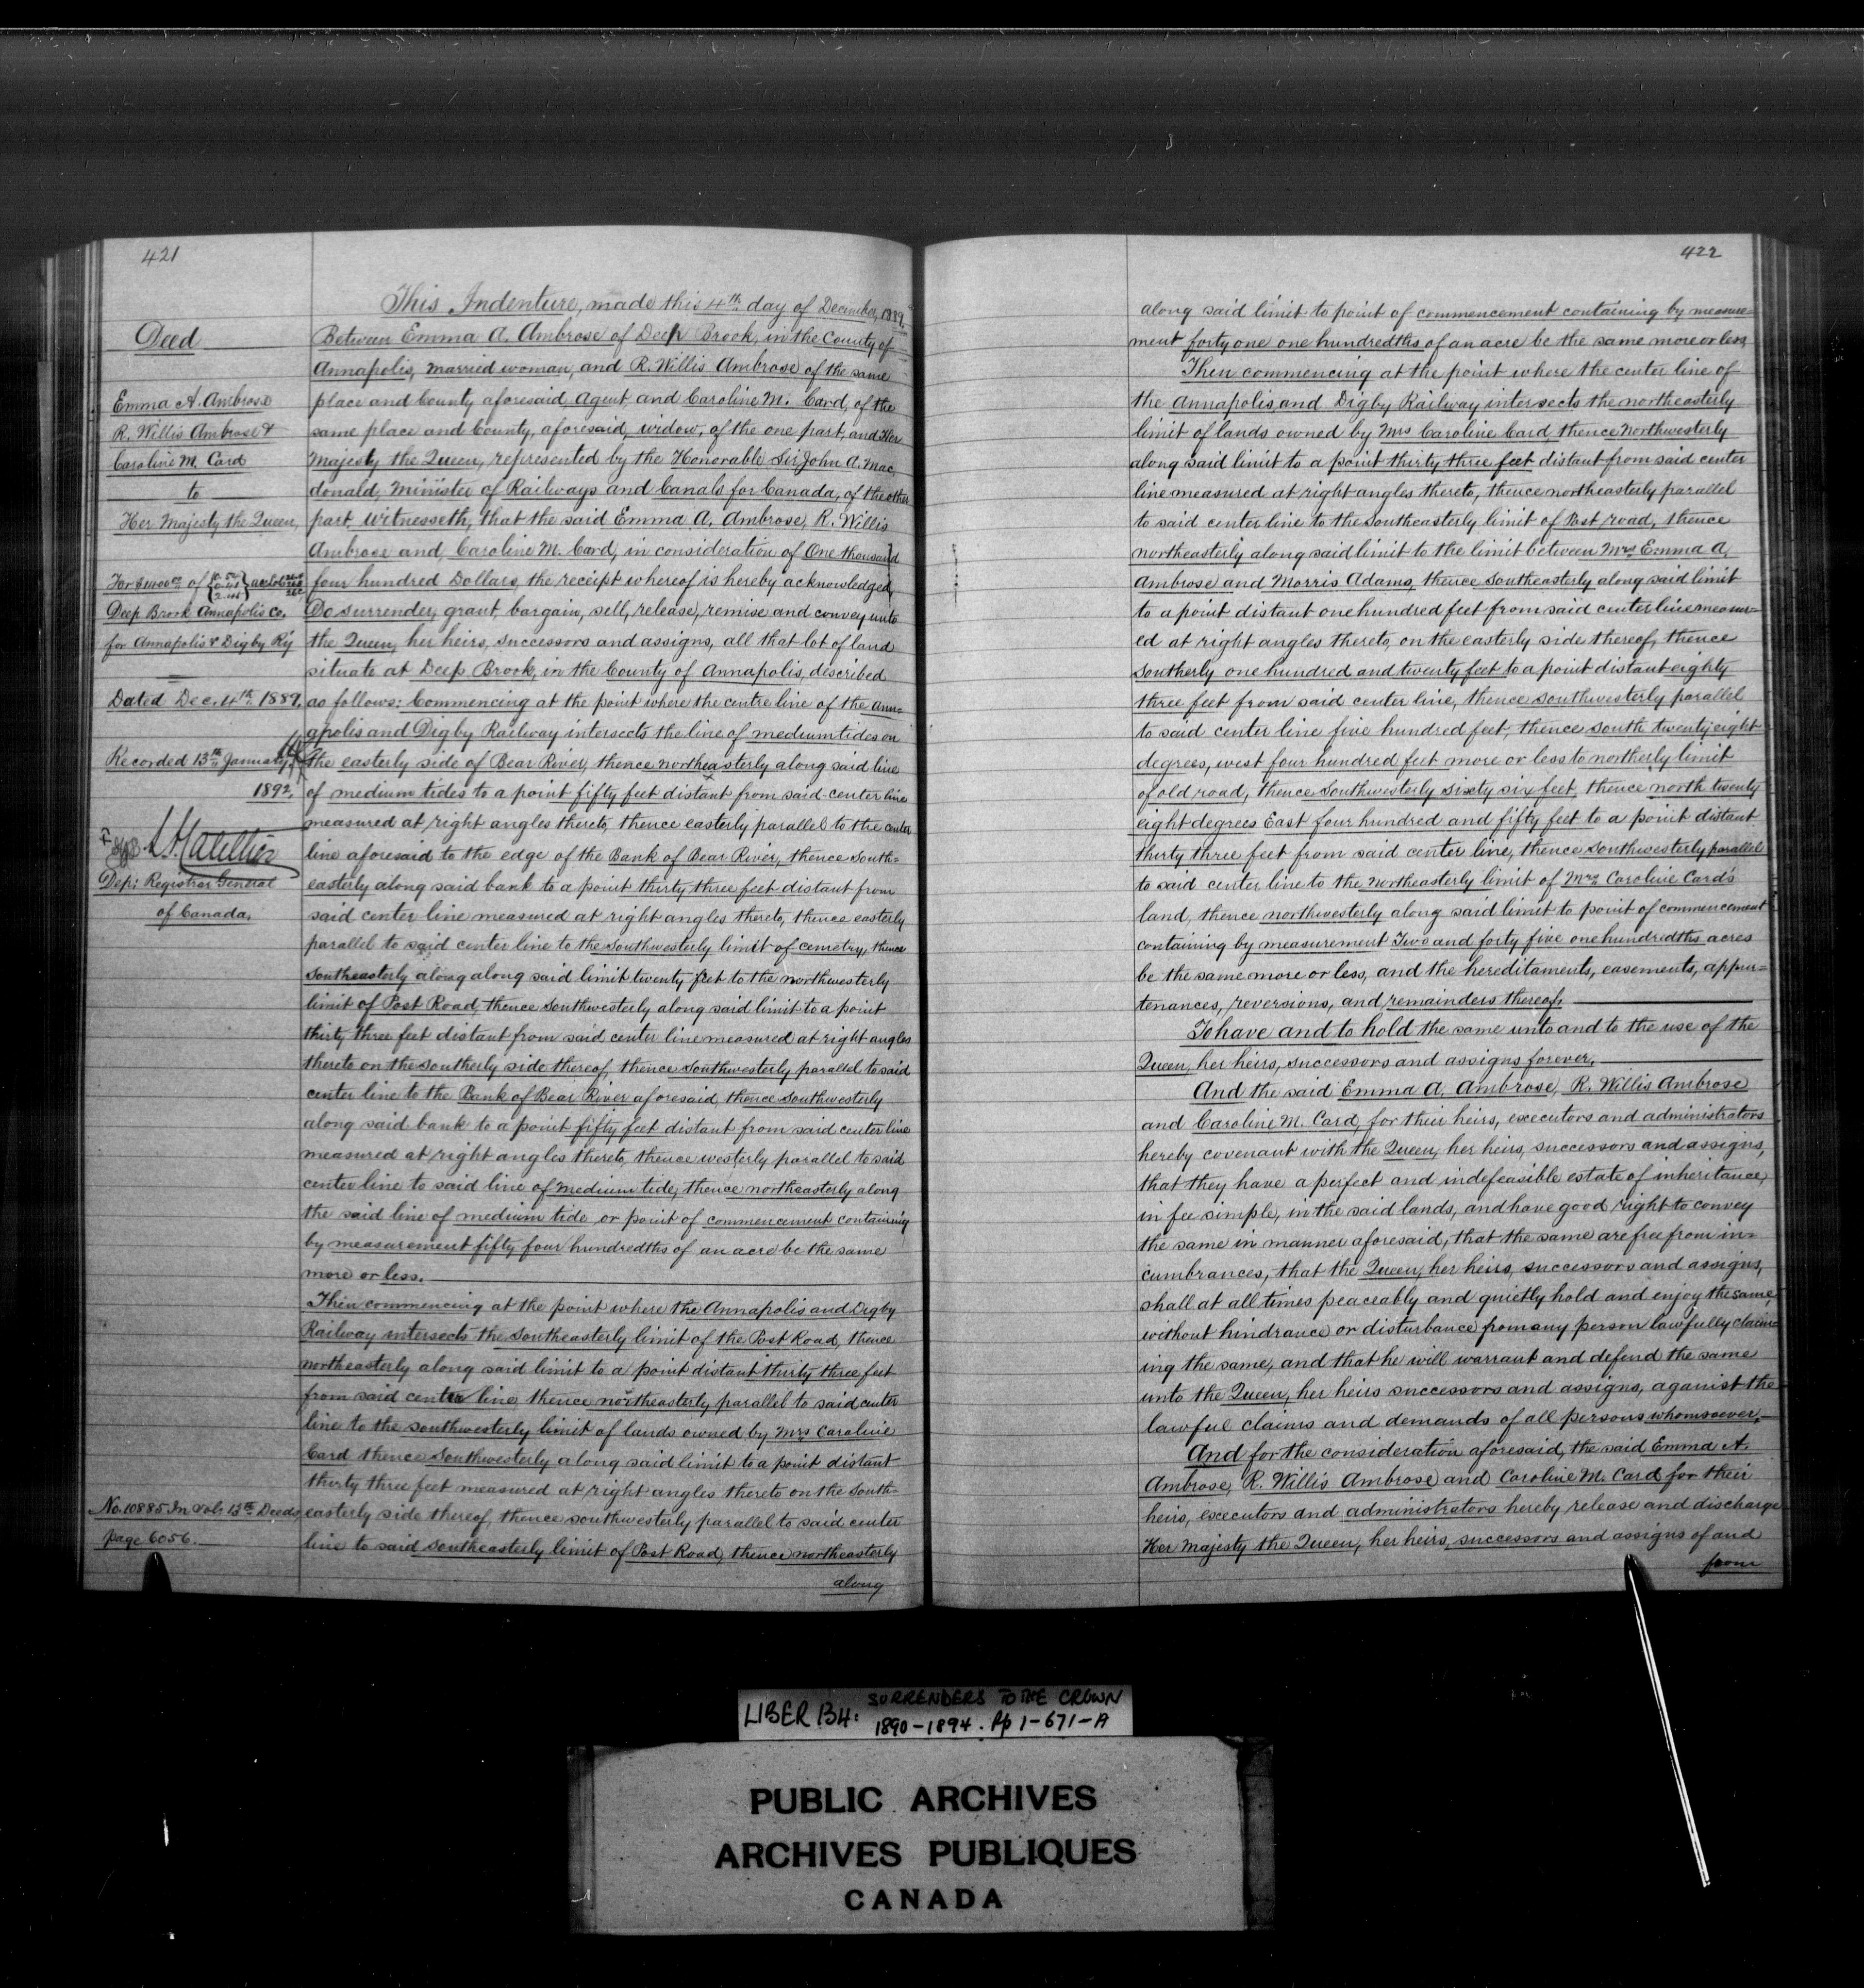 421
Deed
Emma A. Ambrose
R. Willis Ambrose &
Caroline M. Card
to
Her Majesty the Queen,
For $1400.00 of
Deep Brook Annapolis Co.
for Annapolis & Digby Ry
Dated Dec. 4th 1889.
Recorded 13th January
1892.
Dep: Registrar General
of Canada.
No. 10885. In Vol. 13th Deeds
page 6056.
This Indenture, made this 4th day of December, 1889.
Between Emma A. Ambrose of Deep Brook, in the County of
Annapolis, married woman, and R. Willis Ambrose of the same
place and County aforesaid, Agent and Caroline M. Card, of the
same place and County, aforesaid, widow, of the one part, and Her
Majesty the Queen, represented by the Honorable Sir John A. Mac
donald, Minister of Railways and Canals for Canada, of the other
part, witnesseth, that the said Emma A. Ambrose, R. Willis
Ambrose and, Caroline M. Card, in consideration of One thousand
four hundred Dollars, the receipt whereof is hereby acknowledged,
Do surrender, grant, bargain, sell, release, remise and convey unto
the Queen, her heirs, successors and assigns, all that lot of land
situate at Deep Brook, in the County of Annapolis, described
as follows: Commencing at the point where the centre line of the Ann=
apolis and Digby Railway intersects the line of medium tides on
the easterly side of Bear River, thence northeasterly along said line
of medium tides to a point fifty feet distant from said center line
measured at right angles thereto, thence easterly parallel to the center
line aforesaid to the edge of the Bank of Bear River, thence South=
easterly along said bank to a point thirty three feet distant from
said center line measured at right angles thereto, thence easterly
parallel to said center line to the Southwesterly limit of cemetry, thence
Southeasterly along along said limit twenty feet to the northwesterly
limit of Post Road, thence Southwesterly along said limit to a point
thirty three feet distant from said center line measured at right angles
thereto on the Southerly side thereof, thence Southwesterly parallel to said
center line to the Bank of Bear River aforesaid, thence Southwesterly
along said bank to a point fifty feet distant from said center line
measured at right angles thereto, thence westerly parallel to said
center line to said line of medium tide, thence northeasterly along
the said line of medium tide or point of commencement containing
by measurement fifty four hundredths of an acre be the same
more or less.
Then commencing at the point where the Annapolis and Digby
Railway intersects the Southeasterly limit of the Post Road, thence
northeasterly along said limit to a point distant thirty three feet
from said center line, thence northeasterly parallel to said center
line to the southwesterly limit of lands owned by Mrs Caroline
Card thence Southwesterly along said limit to a point distant
thirty three feet measured at right angles thereto on the South-
easterly side thereof, thence southwesterly parallel to said center
line to said Southeasterly limit of Post Road, thence northeasterly
along
422
along said limit to point of commencement containing by measure=
ment forty one one hundredths of an acre be the same more or less
Then commencing at the point where the center line of
the Annapolis and Digby Railway intersects the northeasterly
limit of lands owned by Mrs Caroline Card, thence Northwesterly
along said limit to a point thirty three feet distant from said center
line measured at right angles thereto, thence northeasterly parallel
to said center line to the Southeasterly limit of Post road, thence
northeasterly along said limit to the limit between Mrs Emma A.
Ambrose and Morris Adams, thence Southeasterly along said limit
to a point distant one hundred feet from said center line measur=
ed at right angles thereto, on the easterly side thereof, thence
Southerly one hundred and twenty feet to a point distant eighty
three feet from said center line, thence Southwesterly parallel
to said center line five hundred feet, thence south twenty eight
degrees, west four hundred feet more or less to northerly limit
of old road, thence Southwesterly sixty six feet, thence north twenty
eight degrees East four hundred and fifty feet to a point distant
thirty three feet from said center line, thence Southwesterly parallel
to said center line to the Northeasterly limit of Mrs Caroline Card's
land, thence northwesterly along said limit to point of commencement
containing by measurement Two and forty five one hundredths acres
be the same more or less, and the hereditaments, easements, appur=
tenances, reversions, and remainders thereof.
To have and to hold the same unto and to the use of the
Queen, her heirs, successors and assigns forever.
And the said Emma A. Ambrose, R. Willis Ambrose
and Caroline M. Card, for their heirs, executors and administrators
hereby covenant with the Queen, her heirs, successors and assigns,
that they have a perfect and indefeasible estate of inheritance,
in fee simple, in the said lands, and have good right to convey
the same in manner aforesaid, that the same are free from in=
cumbrances, that the Queen, her heirs, successors and assigns,
shall at all times peaceably and quietly hold and enjoy the same,
without hindrance or disturbance from any person lawfully claim=
ing the same, and that he will warrant and defend the same
unto the Queen, her heirs successors and assigns, against the
lawful claims and demands of all persons whomsoever.
And for the consideration aforesaid, the said Emma A.
Ambrose, R. Willis Ambrose and Caroline M. Card for their
heirs, executors and administrators hereby release and discharge
Her Majesty the Queen, her heirs, successors and assigns of and
from
LIBER 134: SURRENDERS TO THE CROWN
1890-1894. Pp 1-671-A
PUBLIC ARCHIVES
ARCHIVES PUBLIQUES
CANADA